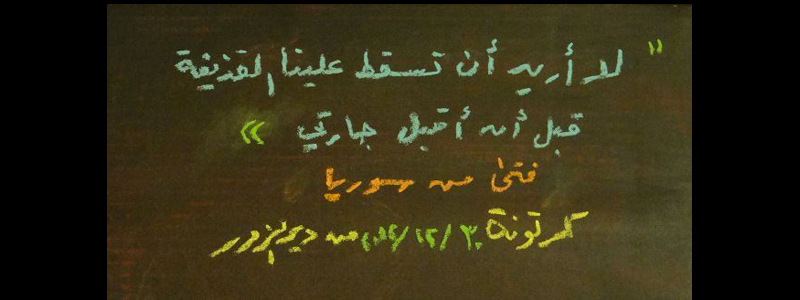 " لا أريد أن تسقط علينا القذيفة
قبل أن أقبل جارتي »
فتىً من سوريا
كرتونة من دير الزور